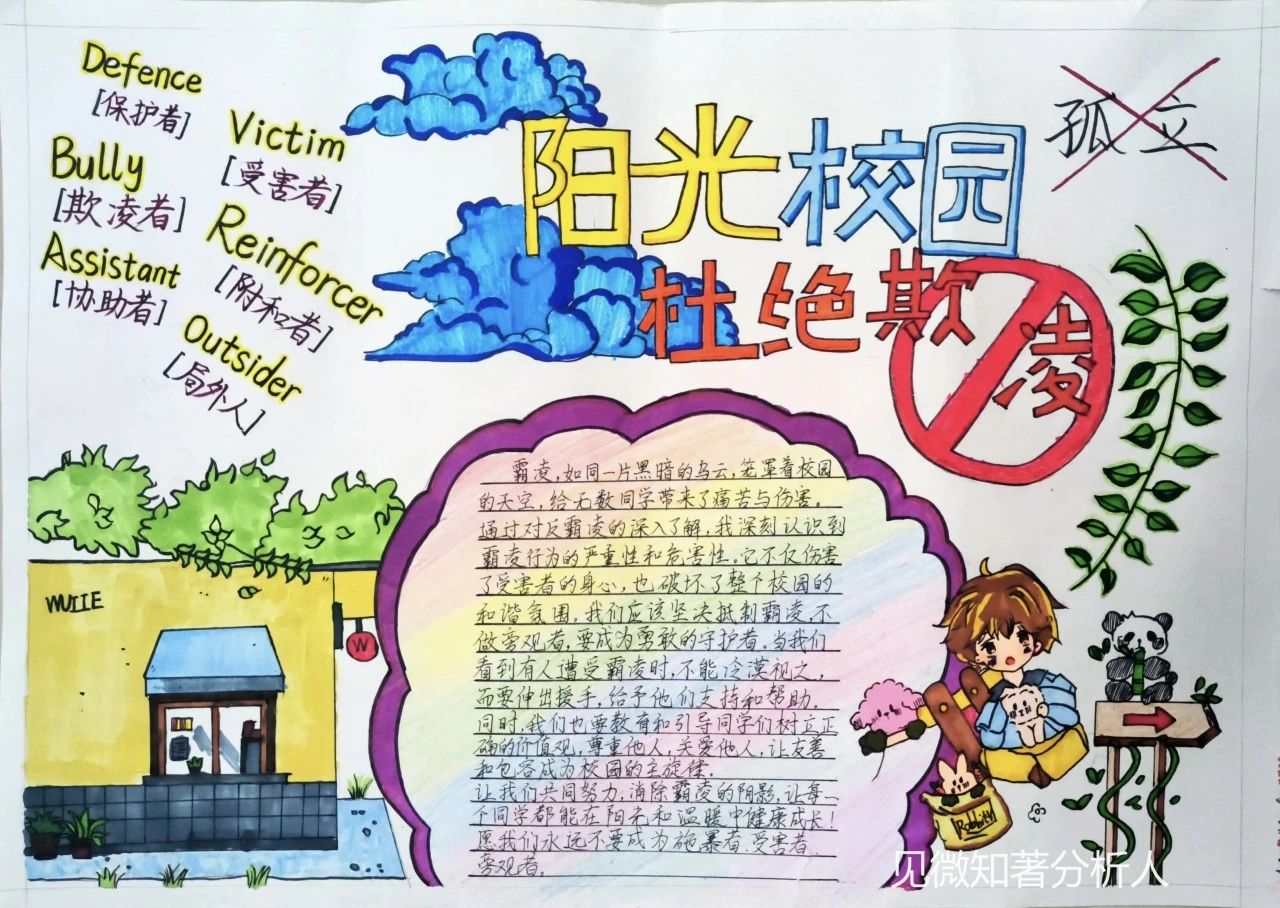 Defence
[保护者]
Victim
[受害者]
Bully
[欺凌者]
Reinforcer
[附和者]
Assistant
[协助者]
Outsider
[局外人]
阳光校园
杜绝欺凌
孤立
霸凌，如同一片黑暗的乌云，笼罩着校园
的天空，给无数同学带来了痛苦与伤害。
通过对反霸凌的深入了解，我深刻认识到
霸凌行为的严重性和危害性。它不仅伤害
了受害者的身心，也破坏了整个校园的
和谐氛围。我们应该坚决抵制霸凌，不
做旁观者，要成为勇敢的守护者。当我们
看到有人遭受霸凌时，不能冷漠视之，
而要伸出援手，给予他们支持和帮助。
同时，我们也要教育和引导同学们树立正
确的价值观，尊重他人，关爱他人，让友善
和包容成为校园的主旋律。
让我们共同努力，消除霸凌的阴影，让每一
个同学都能在阳光和温暖中健康成长！
愿我们永远不要成为施暴者、受害者、
旁观者。
WUIIE
W
Rabbith
见微知著分析人